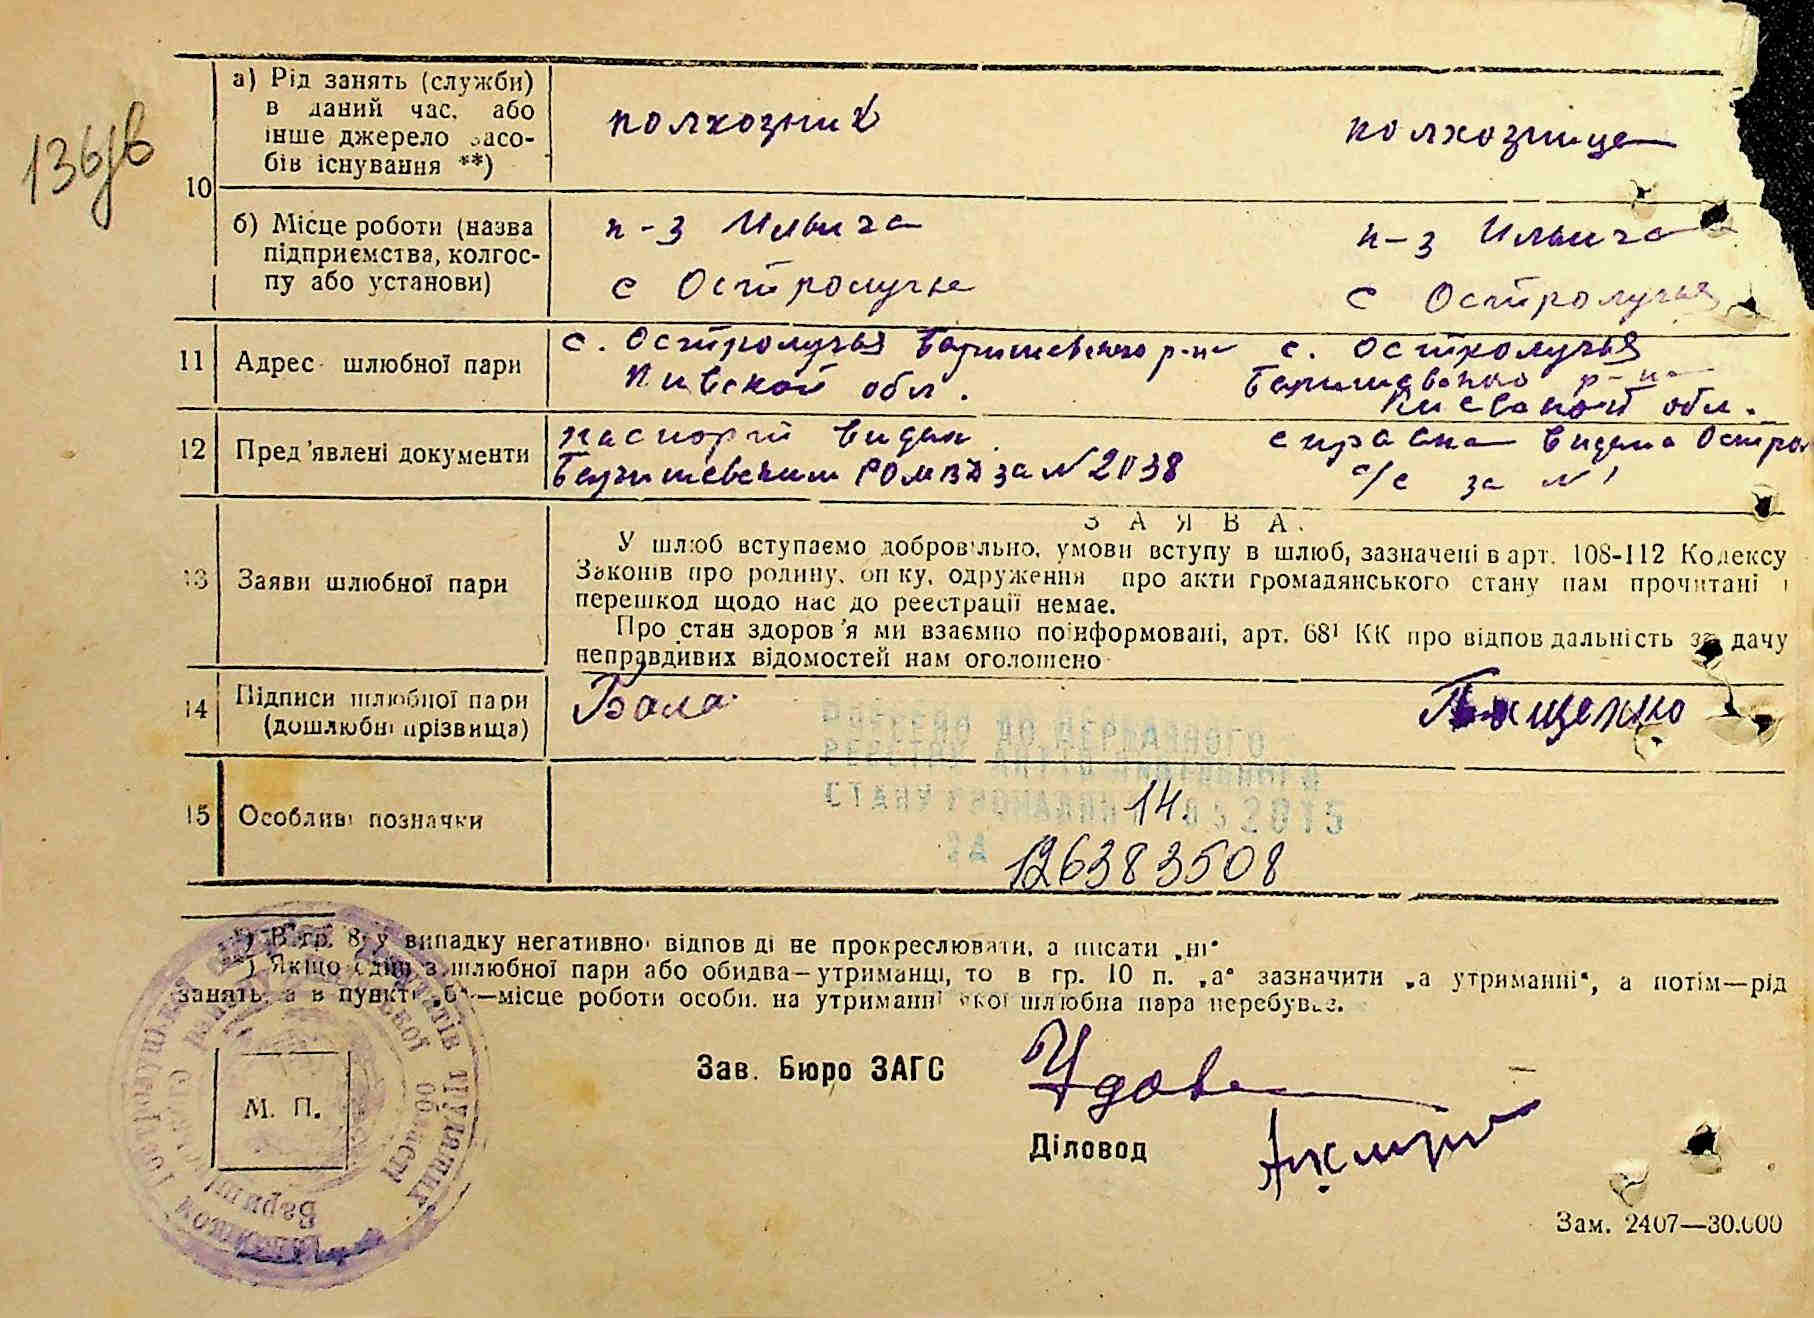 136/в
10
а) Рід занять (служби) в даний час, або інше джерело засобів існування **)
колхозник
колхозница
б) Місце роботи (назва підприємства, колгоспу або установи)
к-з Ильича
с Остролучье
к-з Ильича
с Остролучья
11
Адрес шлюбної пари
с. Остролучья Баришевского р-на
Киевской обл.
с. Остролучья
Баришевского р-на
Киевской обл.
12
Пред'явлені документи
паспорт видан
Баришевским РОМВД за № 2038
справка видана Остро
с/с за № 1
13
Заяви шлюбної пари
ЗАЯВА.
У шлюб вступаємо добровільно, умови вступу в шлюб, зазначені в арт. 108-112 Кодексу
Законів про родину, опіку, одруження про акти громадянського стану нам прочитані і
перешкод щодо нас до реєстрації немає.
Про стан здоров'я ми взаємно поінформовані, арт. 68¹ КК про відповідальність за дачу
неправдивих відомостей нам оголошено
14
Підписи шлюбної пари
(дошлюбні прізвища)
Бала
Пащенко
ВНЕСЕНО ДО ДЕРЖАВНОГО
РЕЄСТРУ АКТІВ ЦИВІЛЬНОГО
СТАНУ ГРОМАДЯН 14. 2015
ЗА 126383508
15
Особливі позначки
*) В гр. 8 у випадку негативної відповіді не прокреслювати, а писати „ні“
**) Якщо один з шлюбної пари або обидва—утриманці, то в гр. 10 п. „а“ зазначити „а утриманні“, а потім—рід
занять, а в пункті „б“—місце роботи особи, на утриманні якої шлюбна пара перебуває.
Зав. Бюро ЗАГС
М. П.
Діловод
Зам. 2407—30.000